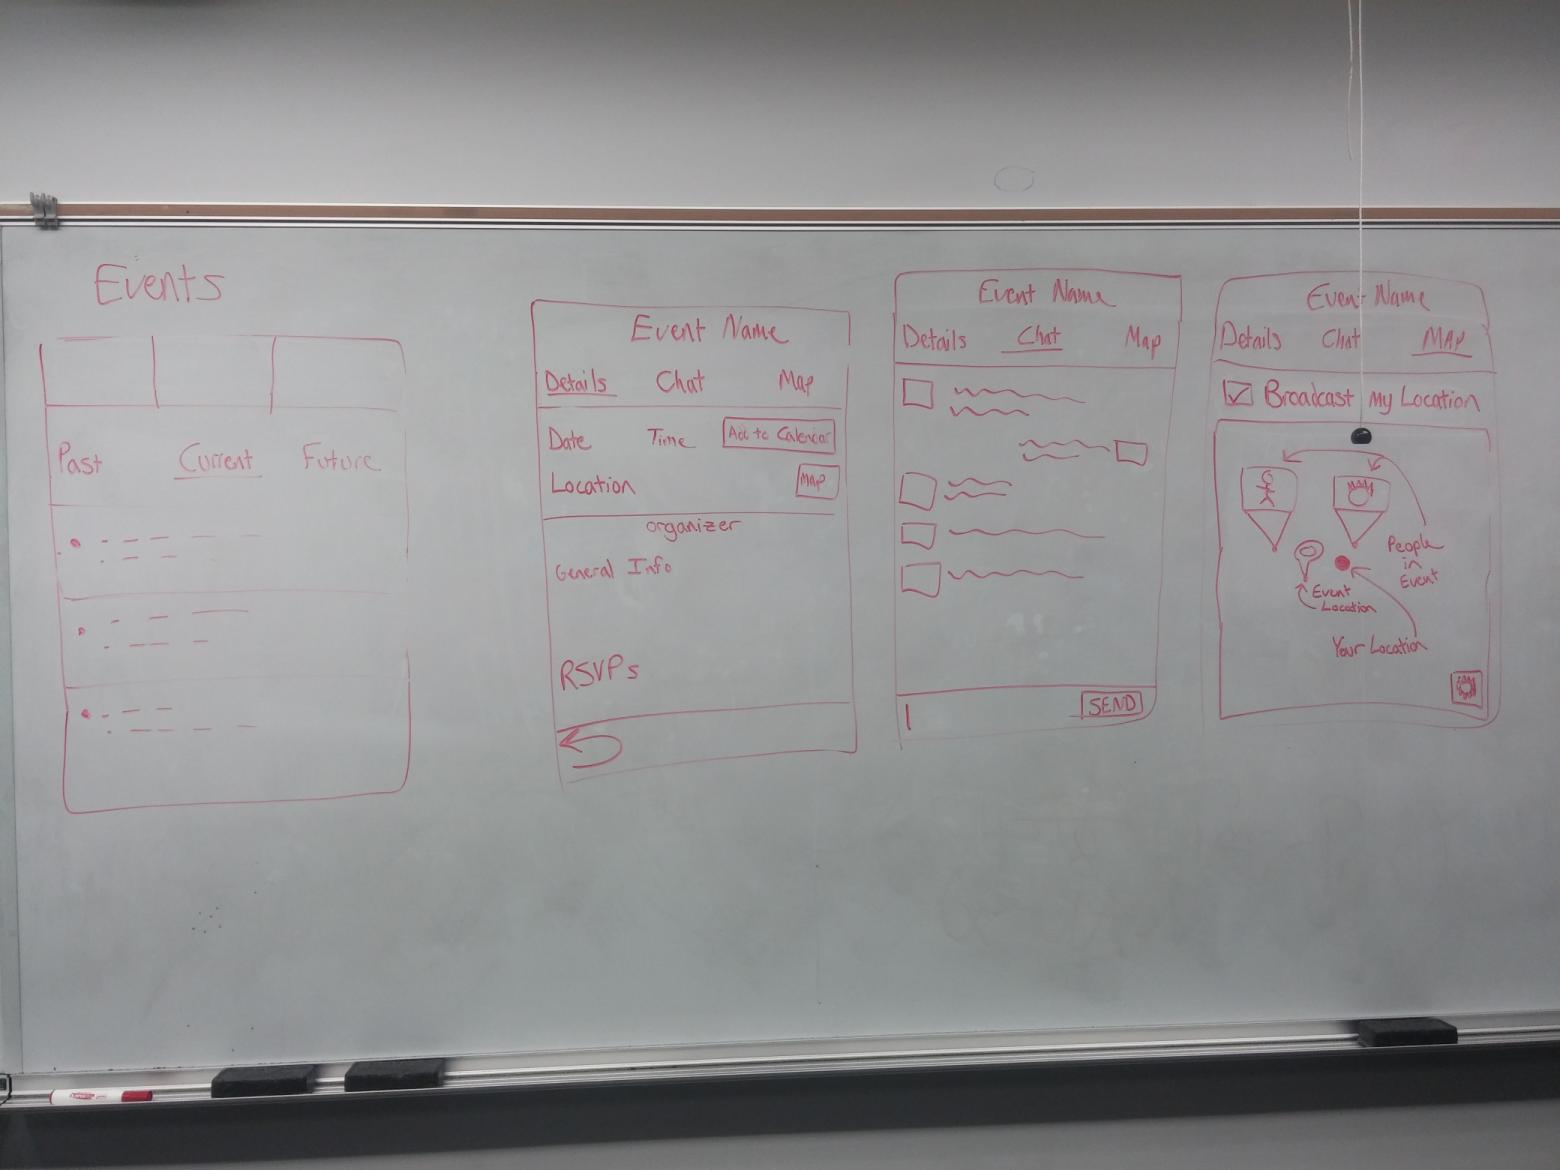 Events
Past Current Future
Event Name
Details Chat Map
Date Time Add to Calendar
Location MAP
organizer
General Info
RSVPs
Event Name
Details Chat Map
SEND
Event Name
Details Chat MAP
Broadcast My Location
People
in
Event
Event
Location
Your Location